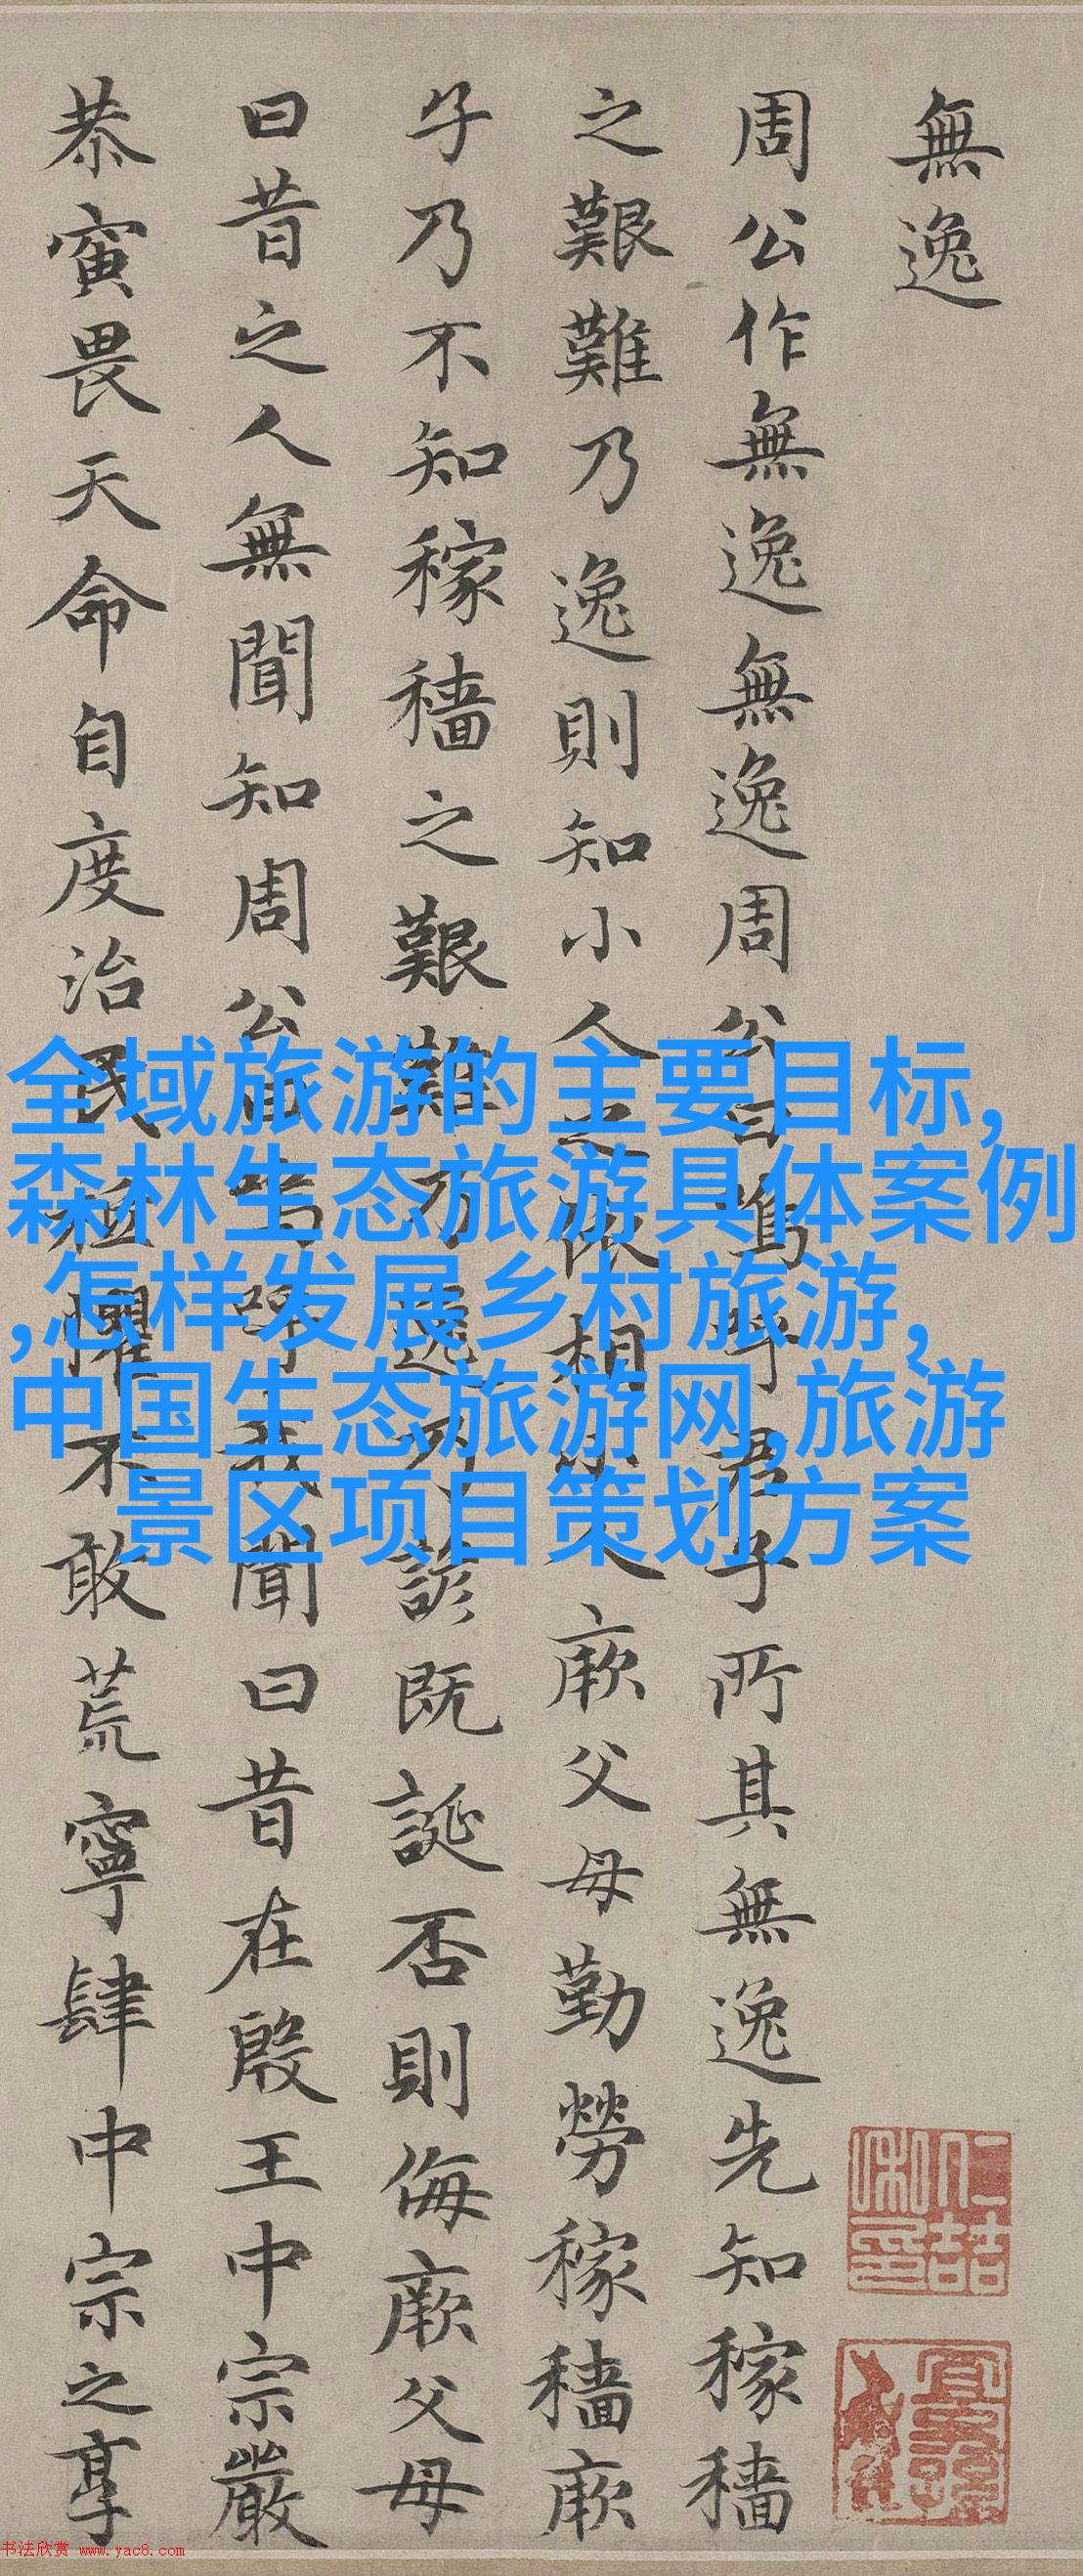 無逸
周公作無逸無逸周公曰嗚呼君子所其無逸先知稼穡
之艱難乃逸則知小人之依相小人厥父母勤勞稼穡厥
子乃不知稼穡之艱難乃逸乃諺既誕否則侮厥父母
曰昔之人無聞知周公曰嗚呼我聞曰昔在殷王中宗嚴
恭寅畏天命自度治民祗懼不敢荒寧肆中宗之享
全域旅游的主要目标,
森林生态旅游具体案例
,怎样发展乡村旅游,
中国生态旅游网,旅游
景区项目策划方案
书法欣赏 www.yac8.com